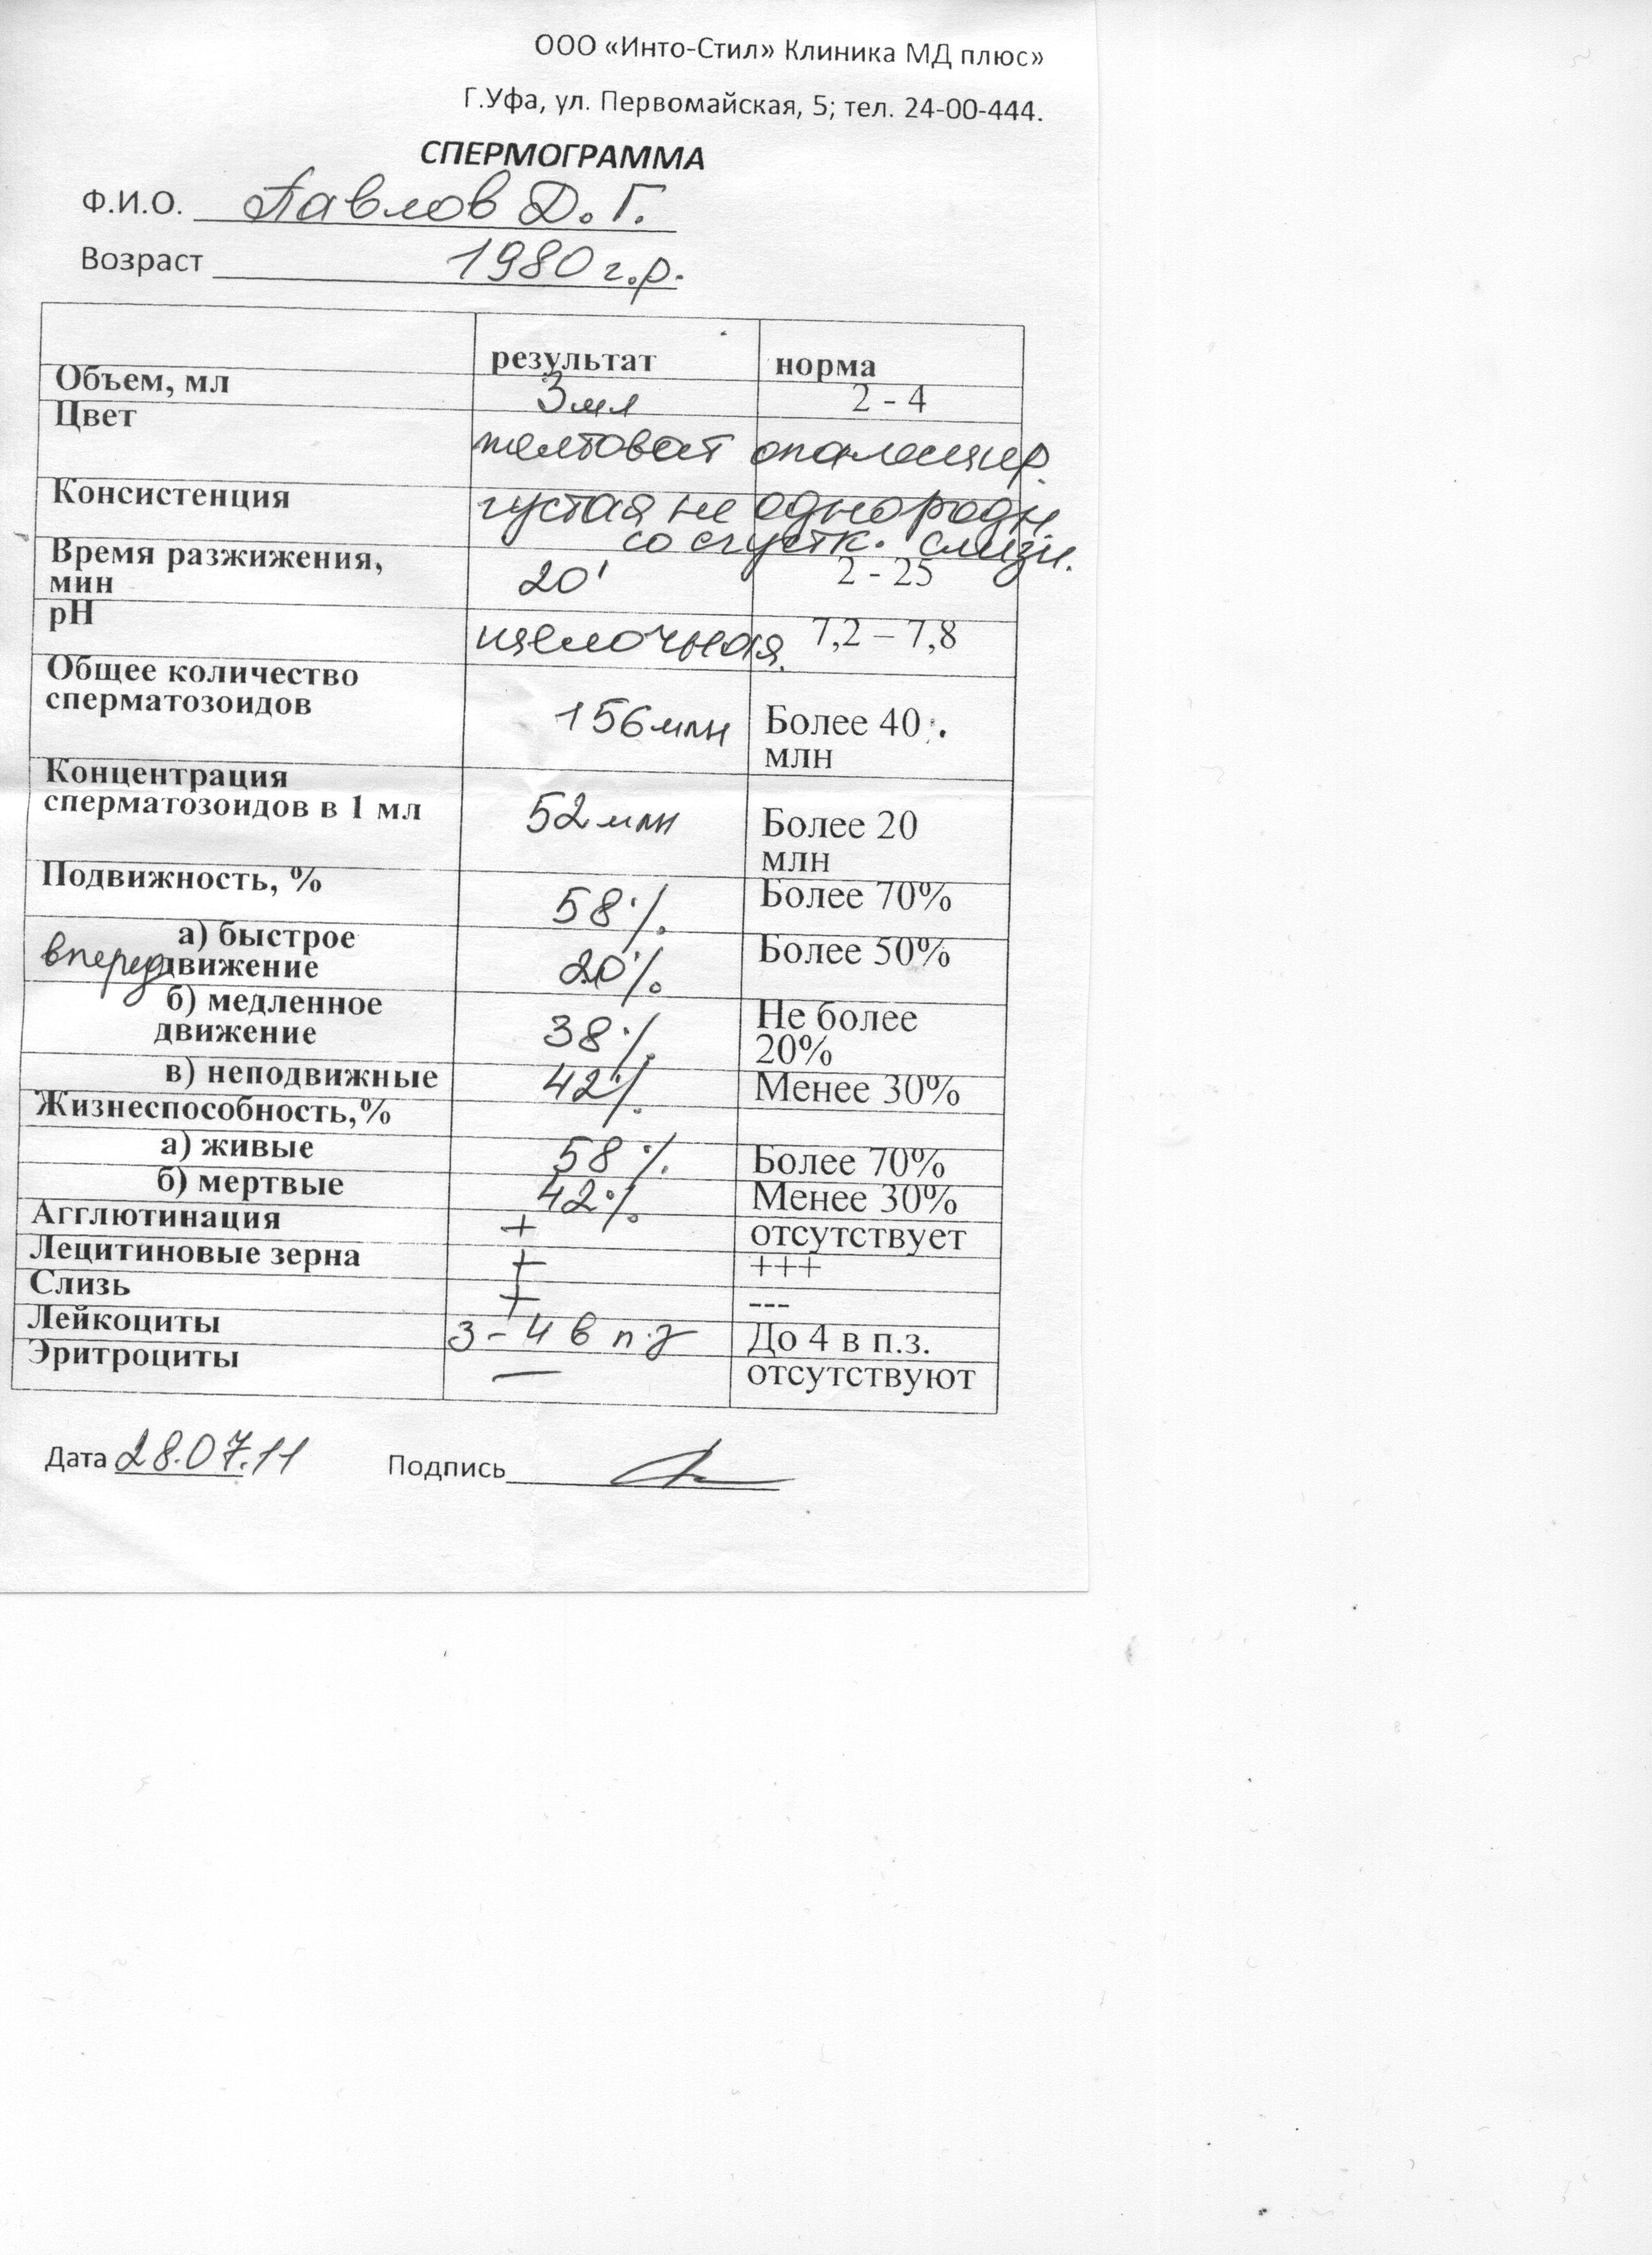 ООО «Инто-Стил» Клиника МД плюс»
Г.Уфа, ул. Первомайская, 5; тел. 24-00-444.
СПЕРМОГРАММА
Ф.И.О. Павлов Д. Г.
Возраст 1980 г.р.
результат норма
Объем, мл 3 мл 2 - 4
Цвет желтоват опалесцир.
Консистенция густая не однородн
со сгустк. слизи.
Время разжижения,
мин 20' 2 - 25
pH щелочная. 7,2 – 7,8
Общее количество
сперматозоидов 156 млн Более 40
млн
Концентрация
сперматозоидов в 1 мл 52 млн Более 20
млн
Подвижность, % 58% Более 70%
а) быстрое
вперед движение 20% Более 50%
б) медленное
движение 38% Не более
20%
в) неподвижные 42% Менее 30%
Жизнеспособность,%
а) живые 58% Более 70%
б) мертвые 42% Менее 30%
Агглютинация + отсутствует
Лецитиновые зерна + +++
Слизь + ---
Лейкоциты 3-4 в п.з До 4 в п.з.
Эритроциты — отсутствуют
Дата 28.07.11 Подпись